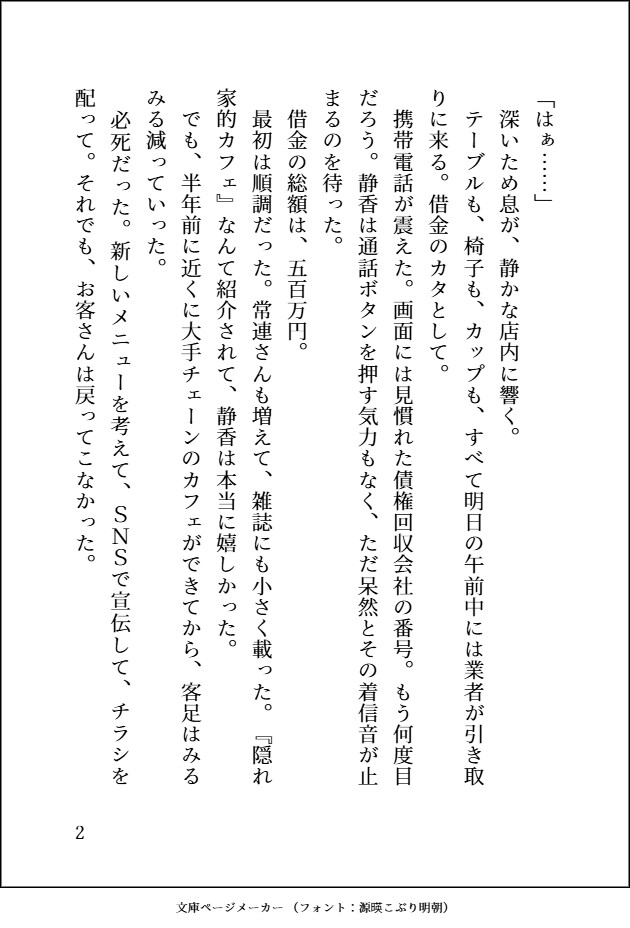 「はぁ……」
　深いため息が、静かな店内に響く。
　テーブルも、椅子も、カップも、すべて明日の午前中には業者が引き取
りに来る。借金のカタとして。
　携帯電話が震えた。画面には見慣れた債権回収会社の番号。もう何度目
だろう。静香は通話ボタンを押す気力もなく、ただ呆然とその着信音が止
まるのを待った。
　借金の総額は、五百万円。
　最初は順調だった。常連さんも増えて、雑誌にも小さく載った。『隠れ
家的カフェ』なんて紹介されて、静香は本当に嬉しかった。
　でも、半年前に近くに大手チェーンのカフェができてから、客足はみる
みる減っていった。
　必死だった。新しいメニューを考えて、ＳＮＳで宣伝して、チラシを
配って。それでも、お客さんは戻ってこなかった。
2
文庫ページメーカー（フォント：源暎こぶり明朝）